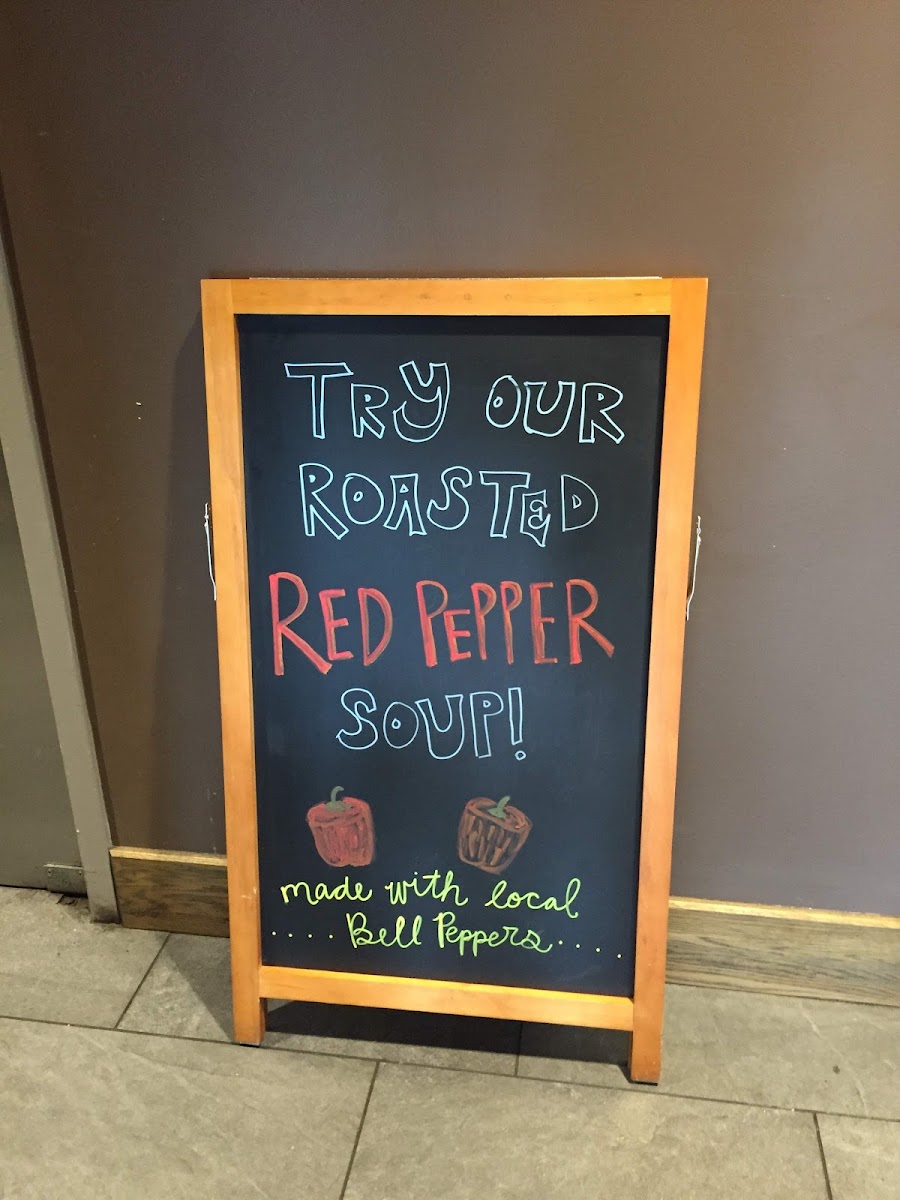 TRY OUR
ROASTED
RED PEPPER
SOUP!
made with local
....Bell Peppers....